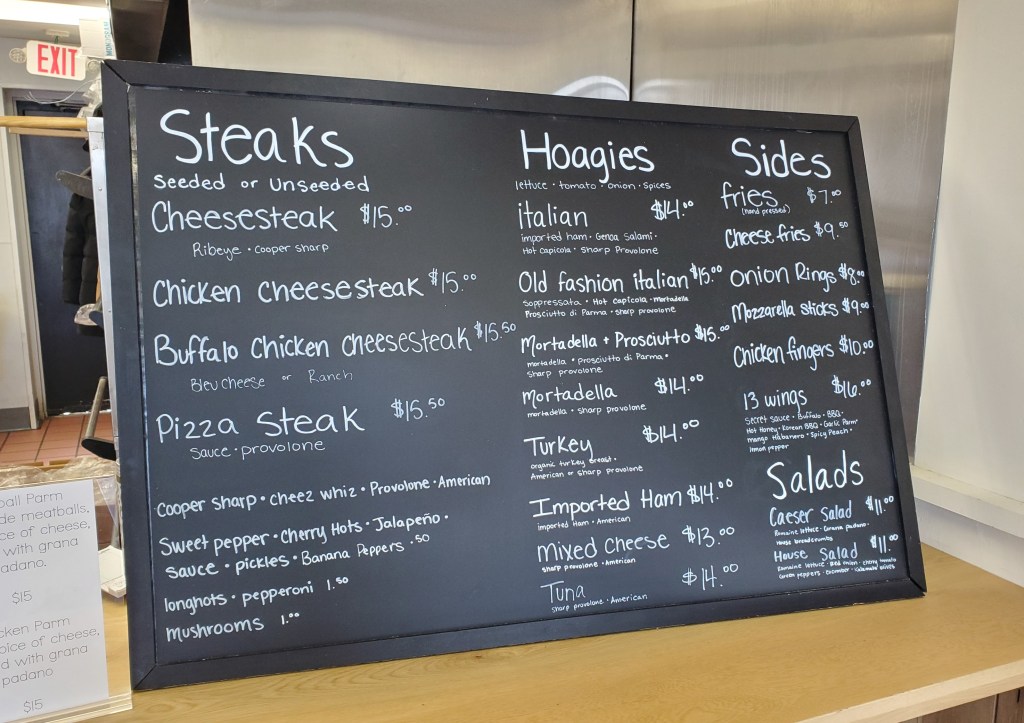 EXIT
Steaks
Seeded or Unseeded
Cheesesteak $15.00
Ribeye · cooper sharp
Chicken cheesesteak $15.00
Buffalo Chicken cheesesteak $15.50
Bleu cheese or Ranch
Pizza Steak $15.50
Sauce · provolone
Cooper sharp · cheez whiz · Provolone · American
Sweet pepper · Cherry Hots · Jalapeño ·
sauce · pickles · Banana Peppers .50
longhots · pepperoni 1.50
mushrooms 1.00
Hoagies
lettuce · tomato · onion · spices
italian $14.00
imported ham · Genoa Salami ·
Hot capicola · sharp Provolone
Old fashion italian $15.00
Soppressata · Hot capicola · mortadella
Prosciutto di Parma · sharp provolone
Mortadella + Prosciutto $15.00
mortadella · Prosciutto di Parma ·
sharp provolone
mortadella $14.00
mortadella · sharp provolone
Turkey $14.00
organic turkey breast ·
American or sharp provolone
Imported Ham $14.00
imported Ham · American
mixed cheese $13.00
sharp provolone · American
Tuna $14.00
sharp provolone · American
Sides
fries $7.00
(hand pressed)
Cheese fries $9.50
Onion Rings $8.00
Mozzarella sticks $9.00
Chicken fingers $10.00
13 wings $16.00
Secret sauce · Buffalo · BBQ ·
Hot Honey · Korean BBQ · Garlic Parm ·
mango Habanero · Spicy Peach ·
lemon pepper
Salads
Caeser Salad $11.00
Romaine lettuce · Grana padano ·
House breadcrumbs
House Salad $11.00
Romaine lettuce · Red onion · cherry tomato
Green peppers · cucumber · olives
ball Parm
de meatballs,
ce of cheese,
with grana
adano.
$15
cken Parm
oice of cheese,
d with grana
padano
$15